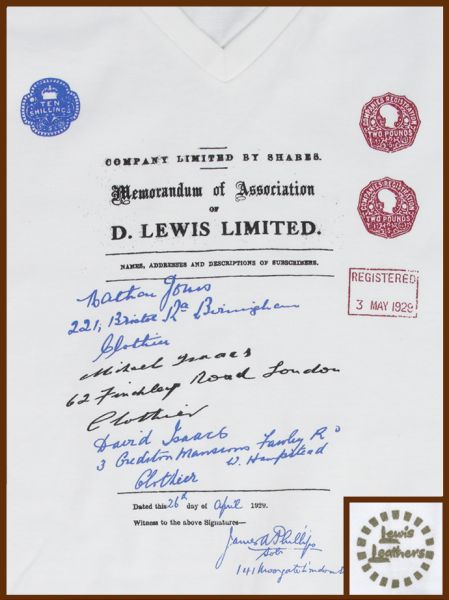 TEN
SHILLINGS
COMPANIES REGISTRATION
TWO POUNDS
COMPANY LIMITED BY SHARES.
Memorandum of Association
OF
D. LEWIS LIMITED.
COMPANIES REGISTRATION
TWO POUNDS
NAMES, ADDRESSES AND DESCRIPTIONS OF SUBSCRIBERS.
REGISTERED
3 MAY 1929
Nathan Jones
221, Bristol Rd Birmingham
Clothier
Michael Isaacs
62 Finchley Road London
Clothier
David Isaacs
3 Crediton Mansions Fawley Rd
W. Hampstead
Clothier
Dated this 26th day of April 1929.
Witness to the above Signatures—
James A Phillips
Solr
141 Moorgate London
Lewis
Leathers